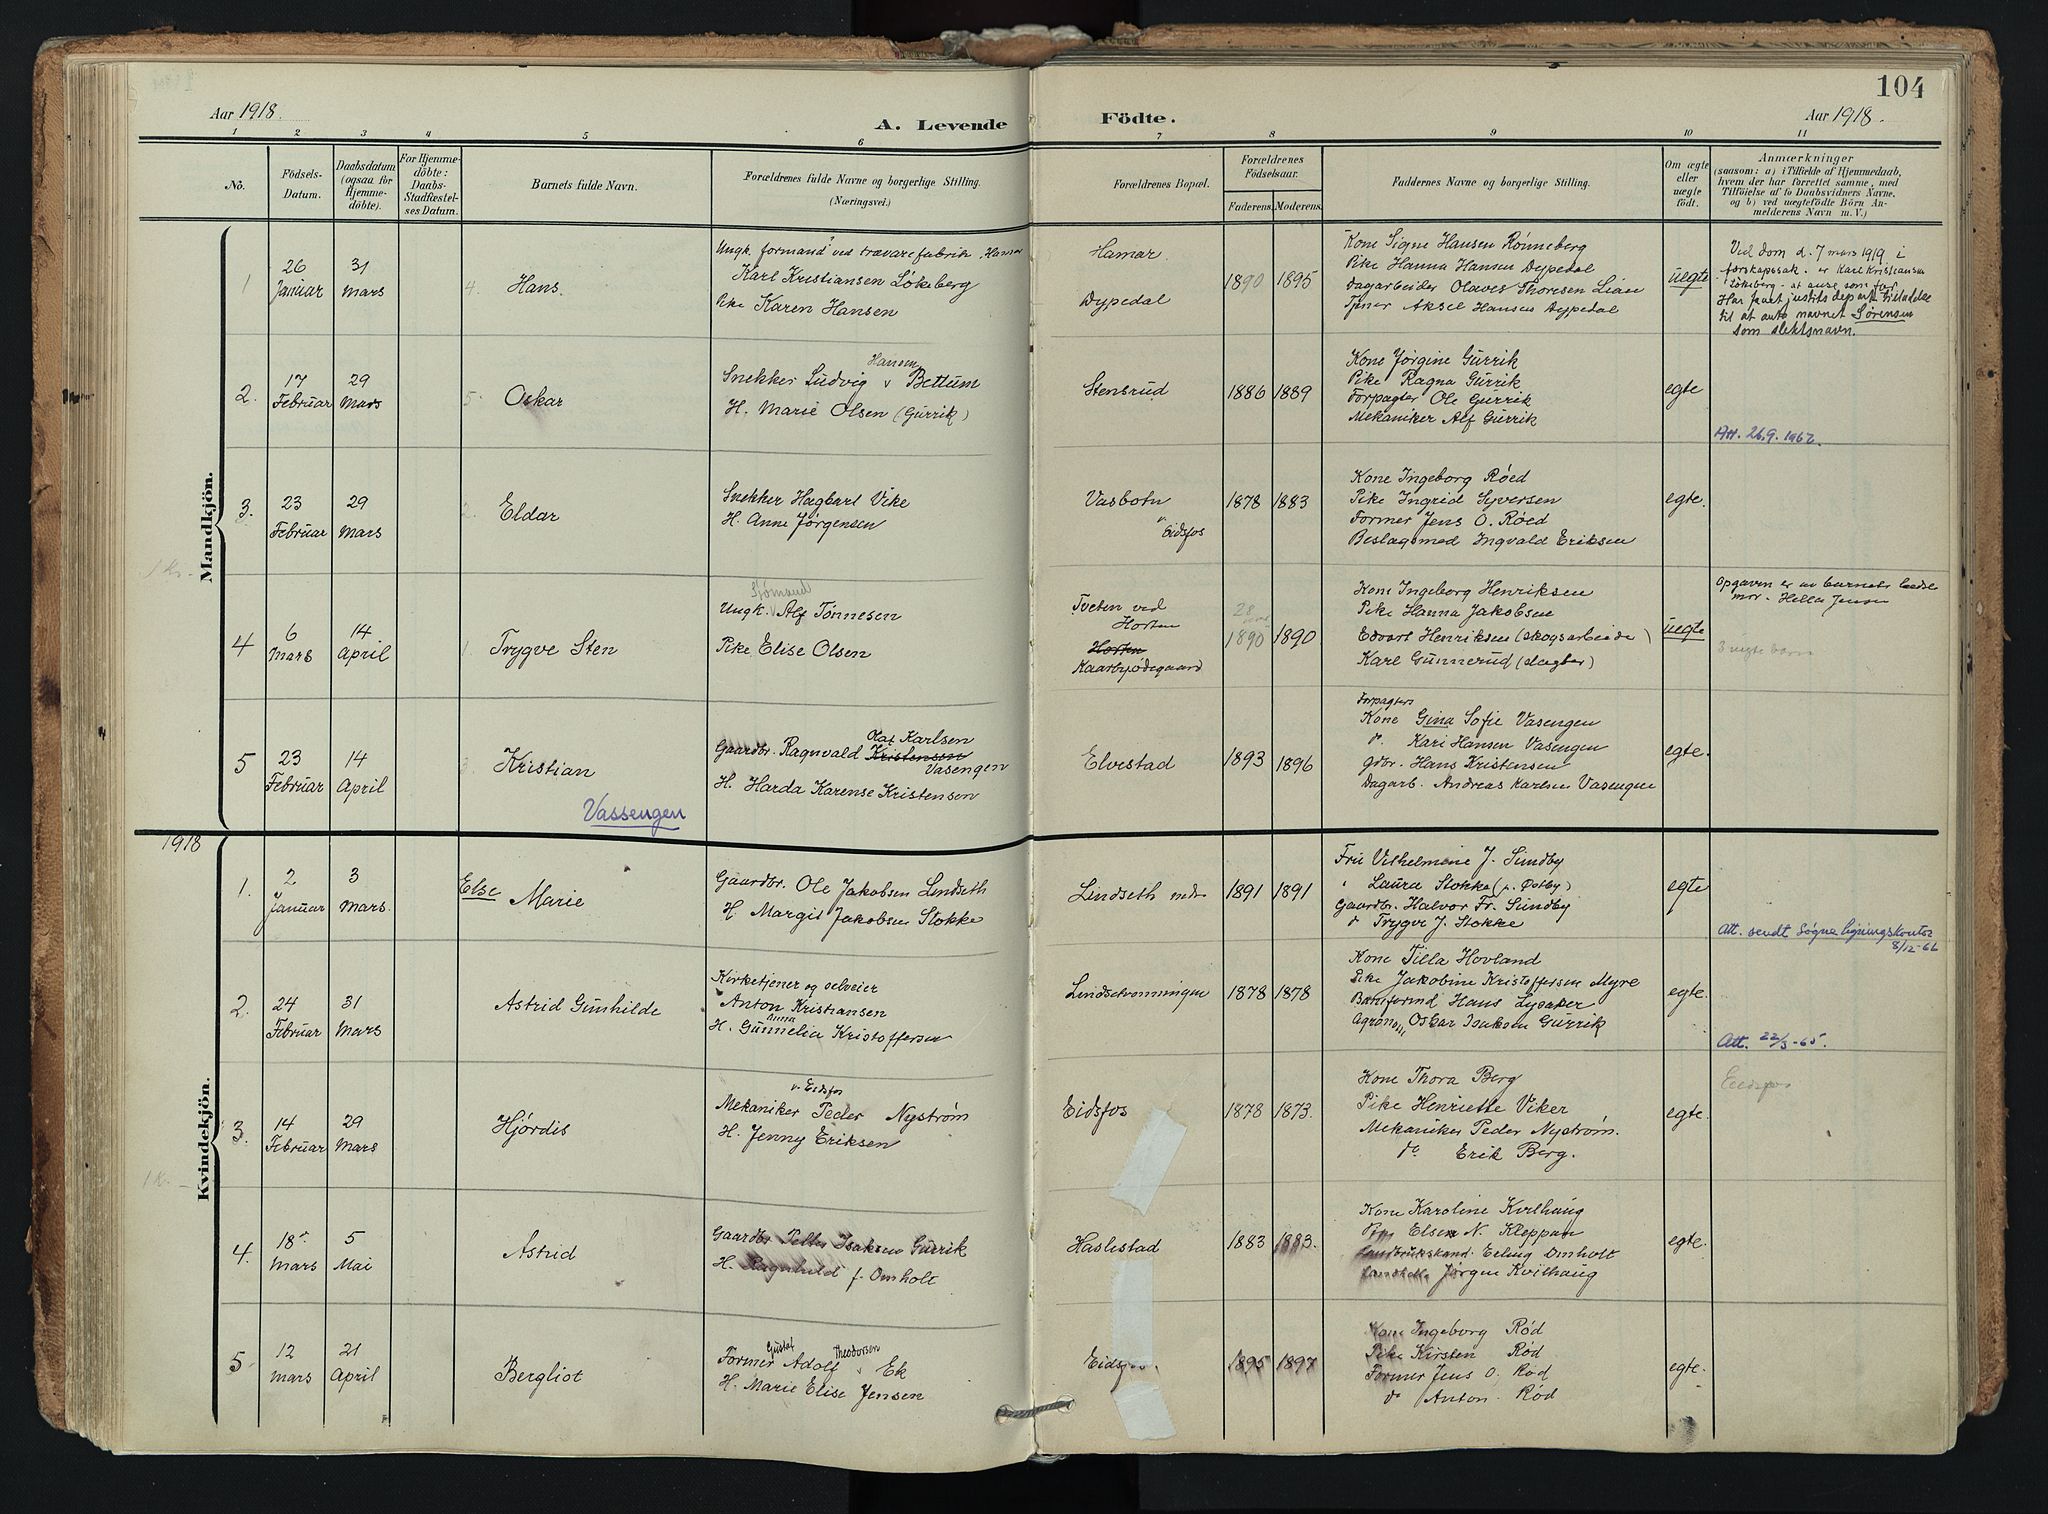 104
Aar 1918.
A. Levende
Födte.
Aar 1918.
1 2 3 4 5 6 7 8 9 10 11
No.
Födsels-Datum.
Daabsdatum (ogsaa for Hjemmedöbte).
For Hjemmedöbte: Daabs-Stadfæstelses Datum.
Barnets fulde Navn.
Forældrenes fulde Navne og borgerlige Stilling.
(Næringsvei.)
Forældrenes Bopæl.
Forældrenes Födselsaar.
Faderens. Moderens.
Faddernes Navne og borgerlige Stilling.
Om ægte eller uægte födt.
Anmærkninger
(saasom: a) i Tilfælde af Hjemmedaab,
hvem der har forrettet samme, med
Tilföielse af to Daabsvidners Navne.
og b) ved uægtefödte Börn Anmelderens Navn m. V.)
Mandkjön.
1
26 Januar
31 Mars
4.
Hans.
Ungk. formand ved trævarefabrik, Hamar
Karl Kristiansen Løkeberg
Pike Karen Hansen
Hamar
Dypedal
1890 1895
Kone Signe Hansen Rønneberg
Pike Hanna Hansen Dypedal
Dagarbeider Olaves Thoresen Lian
Tjener Aksel Hansen Dypedal
uegte
Ved dom d. 7 mars 1919 i
farskapssak er Karl Kristiansen
Løkeberg at anse som far.
Har faat justitsdepart tilladelse
til at anta navnet Sørensen
som slektsnavn.
2.
17 Februar
29 Mars
5
Oskar
Hansen
Snekker Ludvig v Bettum
H. Marie Olsen (Gurrik)
Stensrud
1886 1889
Kone Jørgine Gurrik
Pike Ragna Gurrik
Forpagter Ole Gurrik
Mekaniker Alf Gurrik
egte
Att. 26.9.1962.
3.
23 Februar
29 Mars
2.
Eldar
Snekker Hagbart Vike
H. Anne Jørgensen
Vasbotn
v. Eidsfos
1878 1883
Kone Ingeborg Røed
Pike Ingrid Syversen
Former Jens O. Røed
Beslagsmed Ingvald Eriksen
egte.
1 Kr.
4
6 Mars
14 April
1.
Trygve Sten
Sjømand
Ungk. v Alf Tønnesen
Pike Elise Olsen
Tveten ved
Horten
Horten
Kaarbyødegaard
28 aar
1890 1890
Kone Ingeborg Henriksen
Pike Hanna Jakobsen
Edvart Henriksen (skogsarbeider)
Karl Gunnerud (slagter)
uegte
Opgaven er av barnets bedste
mor. Hella Jensen
3 uegte barn
5
23 Februar
14 April
3.
Kristian
Vassengen
Olaf Karlsen
Gaardbr. Ragnvald Kristensen
Vasengen
H. Harda Karense Kristensen
Elvestad
1893 1896
Forpagters
Kone Gina Sofie Vasengen
do. Kari Hansen Vasengen
Gdbr. Hans Kristensen
Dagarb. Andreas Karlsen Vasengen
egte.
1918
Kvindekjön.
1.
2 Januar
3 Mars
Else Marie
Gaardbr. Ole Jakobsen Lindseth
H. Margit Jakobsen Stokke
Lindseth nedre
1891 1891
Fru Vilhelmine J. Sundby
" Laura Stokke (p. Østby)
Gaardbr. Halvor Fr. Sundby
do Trygve J. Stokke
egte
Att. sendt Søgne ligningskontor
8/12-66
2.
24 Februar
31 Mars
Astrid Gunhilde
Kirketjener og selveier
Anton Kristiansen
Anna
H. Gunnelia Kristoffersen
Lindsetrønningen
1878 1878
Kone Tilla Hovland
Pike Jakobine Kristoffersen Myre
Banformd Hans Lysaker
Agronom Oskar Isaksen Gurrik
egte.
Att. 22/3-65.
3.
14 Februar
29 Mars
Hjørdis
v. Eidsfos
Mekaniker Peder Nystrøm
H. Jenny Eriksen
Eidsfos
1878 1873.
Kone Thora Berg
Pike Henriette Viker
Mekaniker Peder Nystrøm.
do Erik Berg.
egte.
Eidsfos
1 K.
4.
18de Mars
5 Mai
Astrid
Gaardbr Petter Isaksen Gurrik
H. Ragnhild f. Omholt
Haslestad
1883 1883.
Kone Karoline Kvilhaug
Pike Elsen N. Kleppan
Landbrukskand. Erling Omholt
Jørgen Kvilhaug
egte.
5
12 Mars
21 April
Bergliot
Gustaf Theodorsen
Former Adolf v Ek
H. Marie Elise Jensen
Eidsfos.
1895 1897
Kone Ingeborg Rød
Pike Kirsten Rød
Former Jens O. Rød
do Anton Rød
egte.